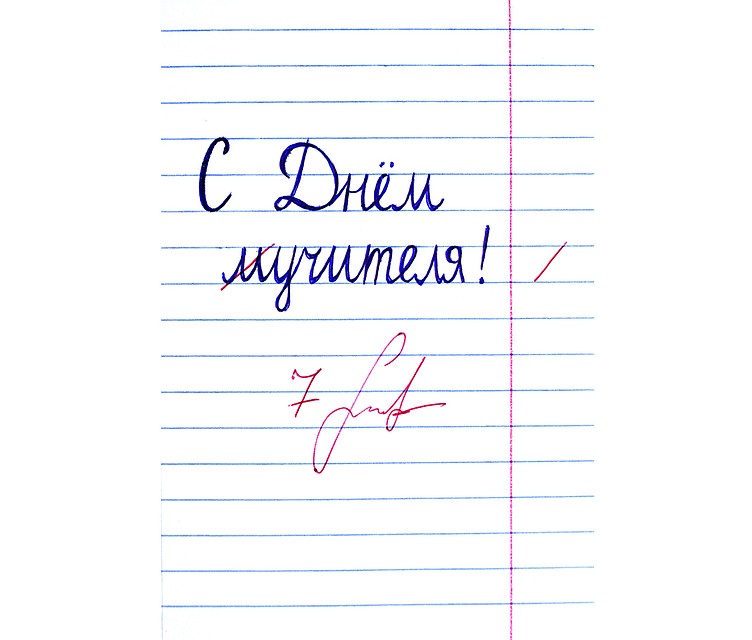 С Днём
мучителя!
7